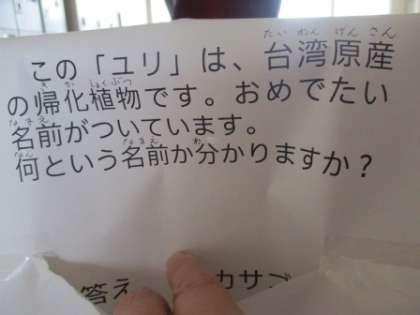 この「ユリ」は、台湾原産
の帰化植物です。おめでたい
名前がついています。
何という名前か分かりますか？
答え カサゴ